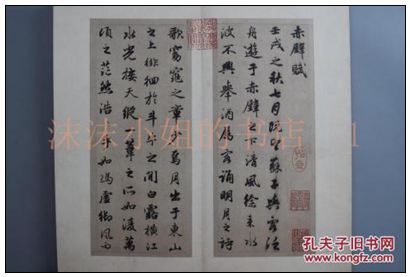 赤壁賦
壬戌之秋七月既望蘇子與客泛
舟遊于赤壁之下清風徐来水
波不興舉酒屬客誦明月之詩
歌窈窕之章少焉月出于東山
之上徘徊於斗牛之間白露橫江
水光接天縱一葦之所如凌萬
頃之茫然浩乎如馮虛御風而
沫沫小姐的书店